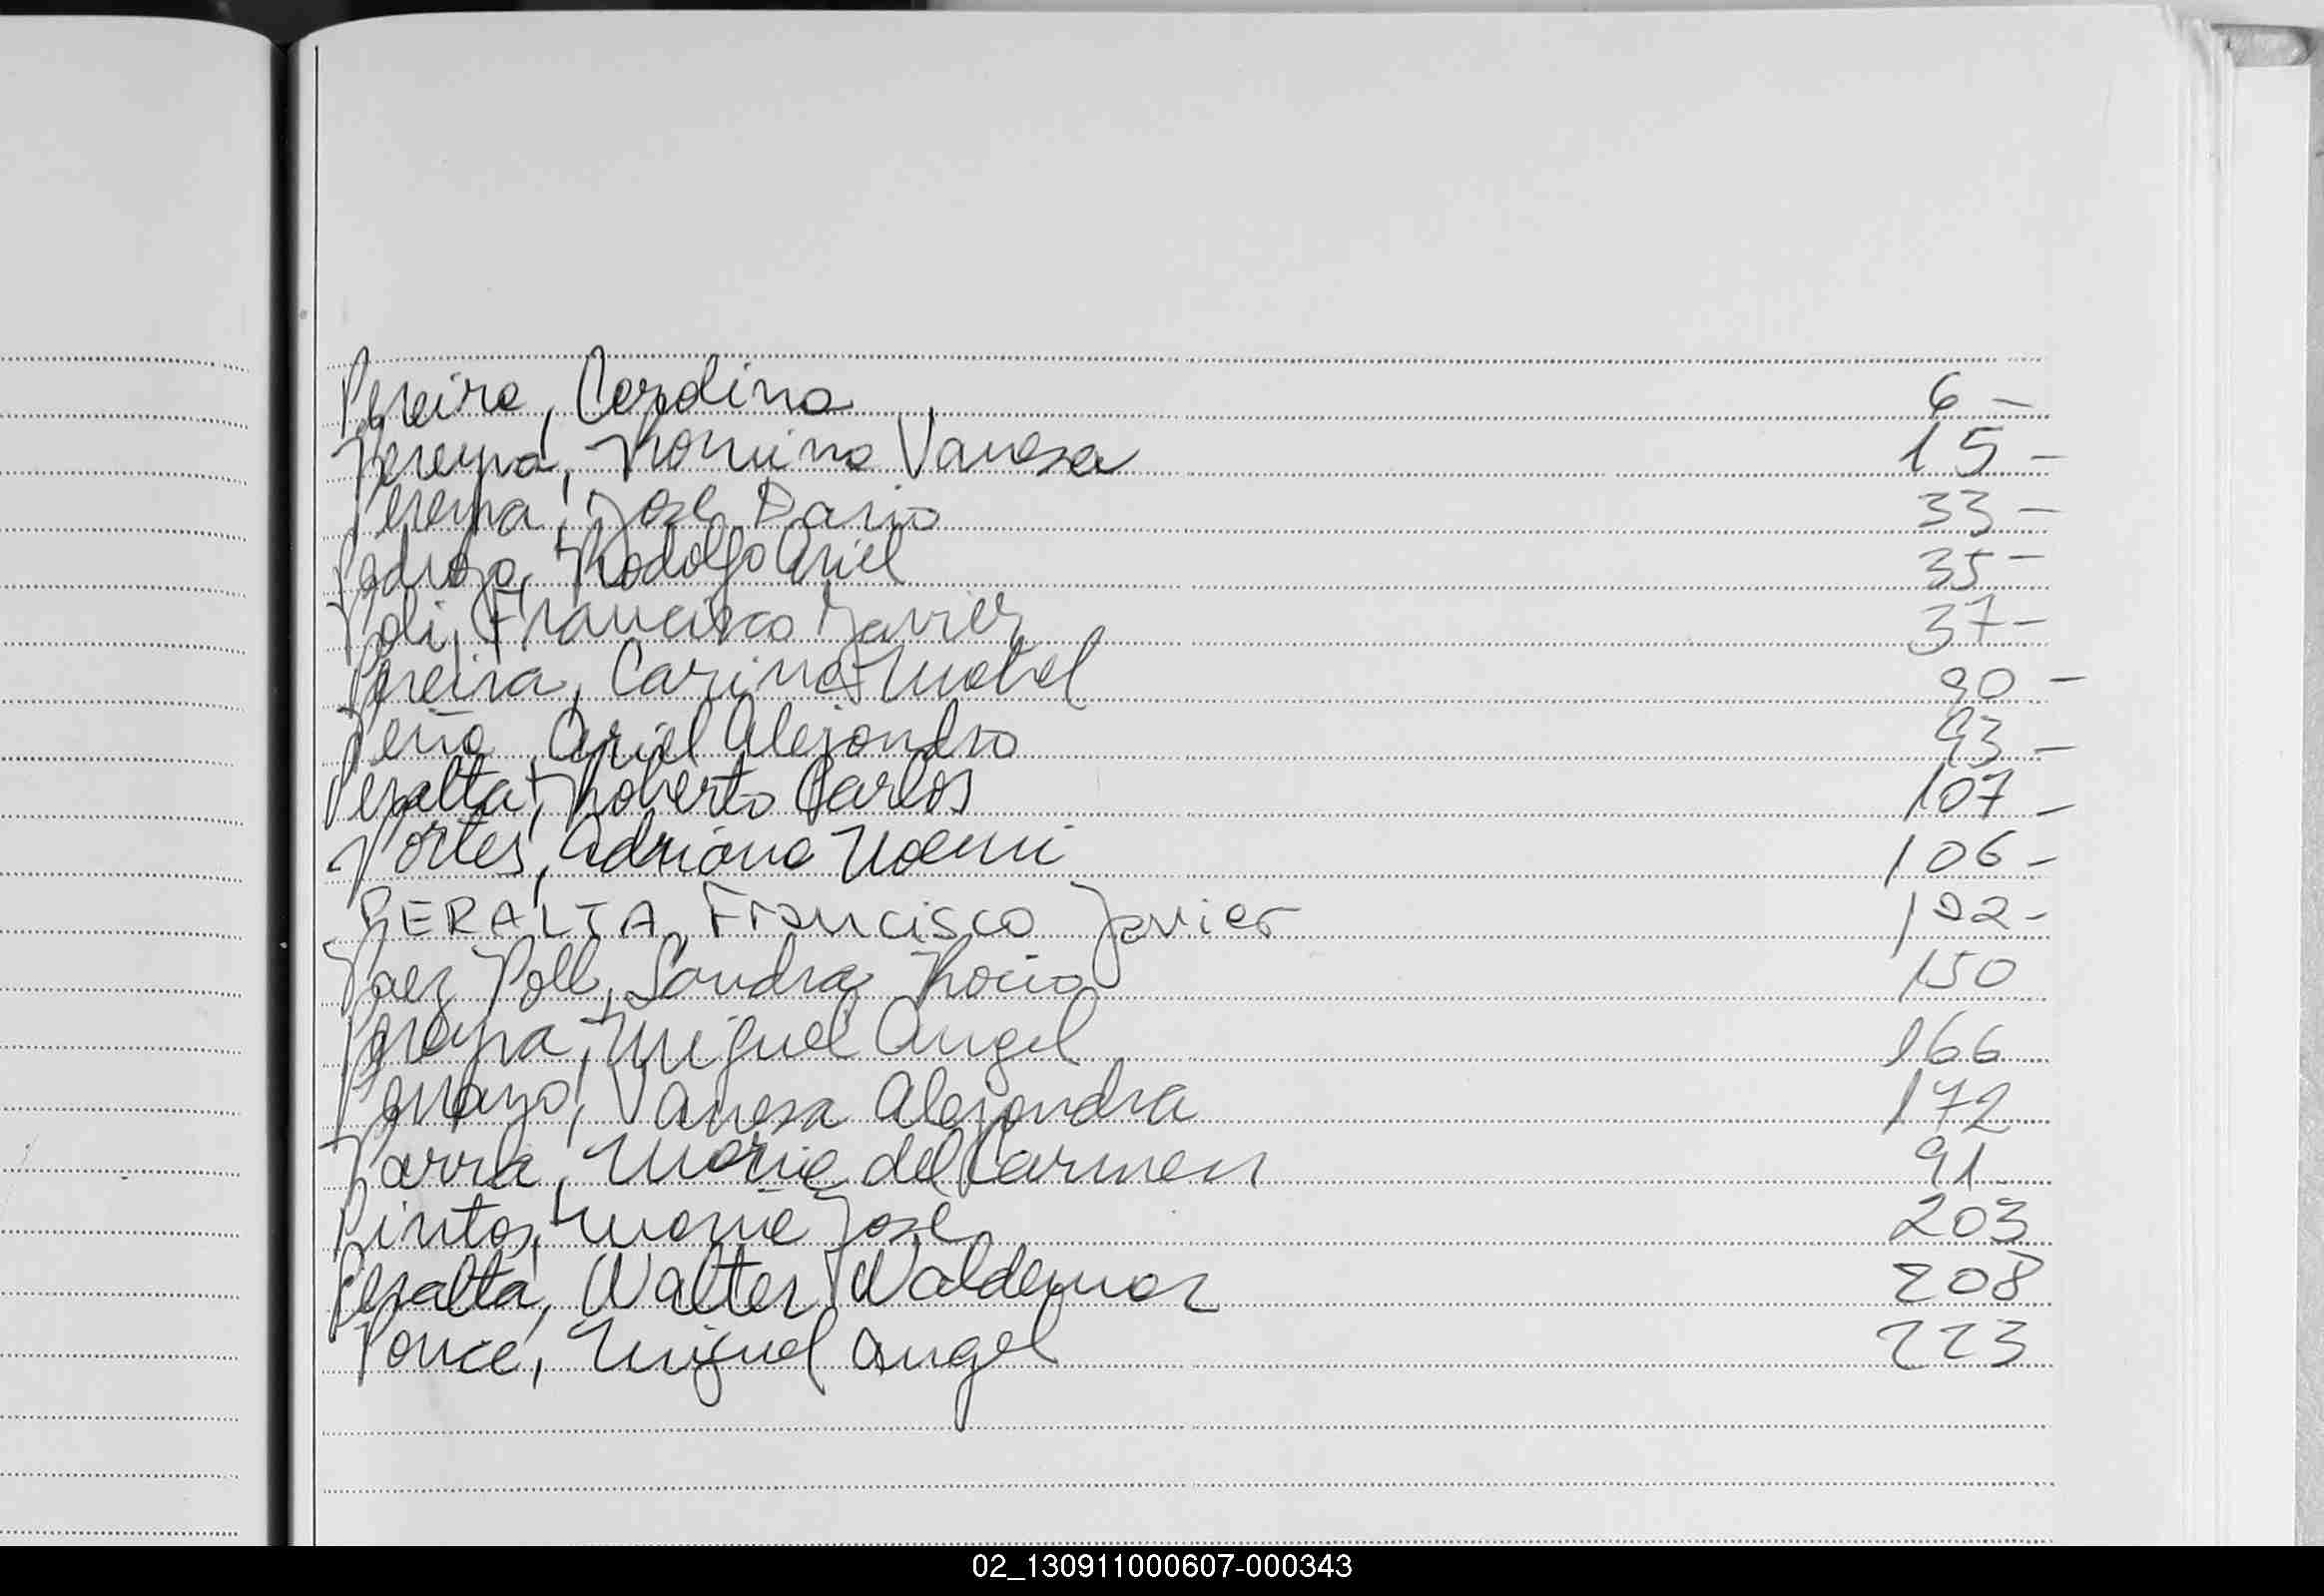 Pereira, Carolina 6 -
Pereyra, Romina Vanesa 15 -
Pereyra, Jose Dario 33 -
Pedrozo, Rodolfo Ariel 35 -
Poli, Francisco Javier 37 -
Pereira, Carina Mabel 90 -
Peña, Ariel Alejandro 93 -
Peralta, Roberto Carlos 107 -
Portes, Adriana Noemi 106 -
PERALTA, Francisco Javier 122 -
Paez Poll, Sandra Rocio 150
Pereyra, Miguel Angel 166
Vanesa Alejandra 172
Parra, Maria del Carmen 91
Pintos, Maria José 203
Peralta, Walter Waldemar 208
Ponce, Miguel Angel 223
02_130911000607-000343